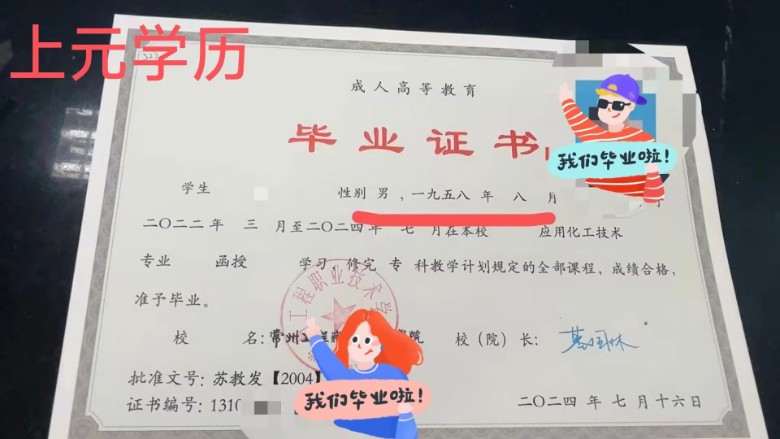 上元学历
成人高等教育
毕业证书
我们毕业啦!
学生 性别 男 ,一九五八 年 八 月
二〇二二年 三 月至二〇二四年 七 月在本校 应用化工技术
专业 函授 学习,修完 专 科教学计划规定的全部课程,成绩合格,
准予毕业。
工程职业技术学
校 名:常州工程 院 校(院)长:
批准文号:苏教发【2004】
我们毕业啦!
证书编号:1310 二〇二四 年 七 月十六日